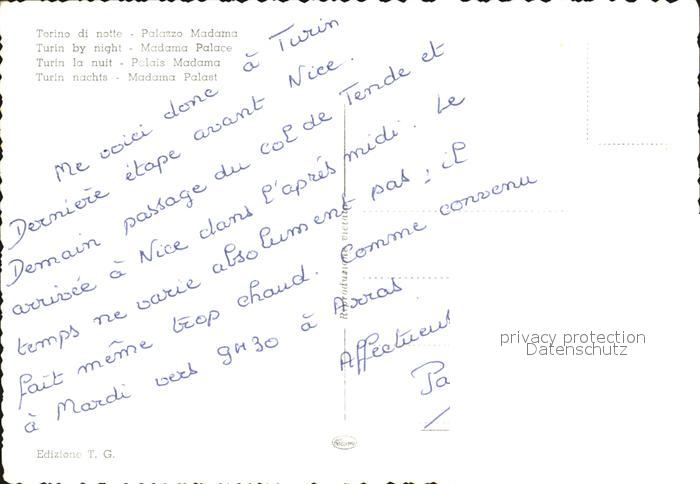 Torino di notte - Palazzo Madama
Turin by night - Madama Palace
Turin la nuit - Palais Madama
Turin nachts - Madama Palast
Me voici donc à Turin
Dernière étape avant Nice.
Demain passage du col de Tende et
arrivée à Nice dans l'après midi. Le
temps ne varie absolument pas ; il
fait même trop chaud. Comme convenu
à Mardi vers 9H30 à Arras.
Affectueus
Pa
Riproduzione vietata
Edizione T. G.
privacy protection
Datenschutz